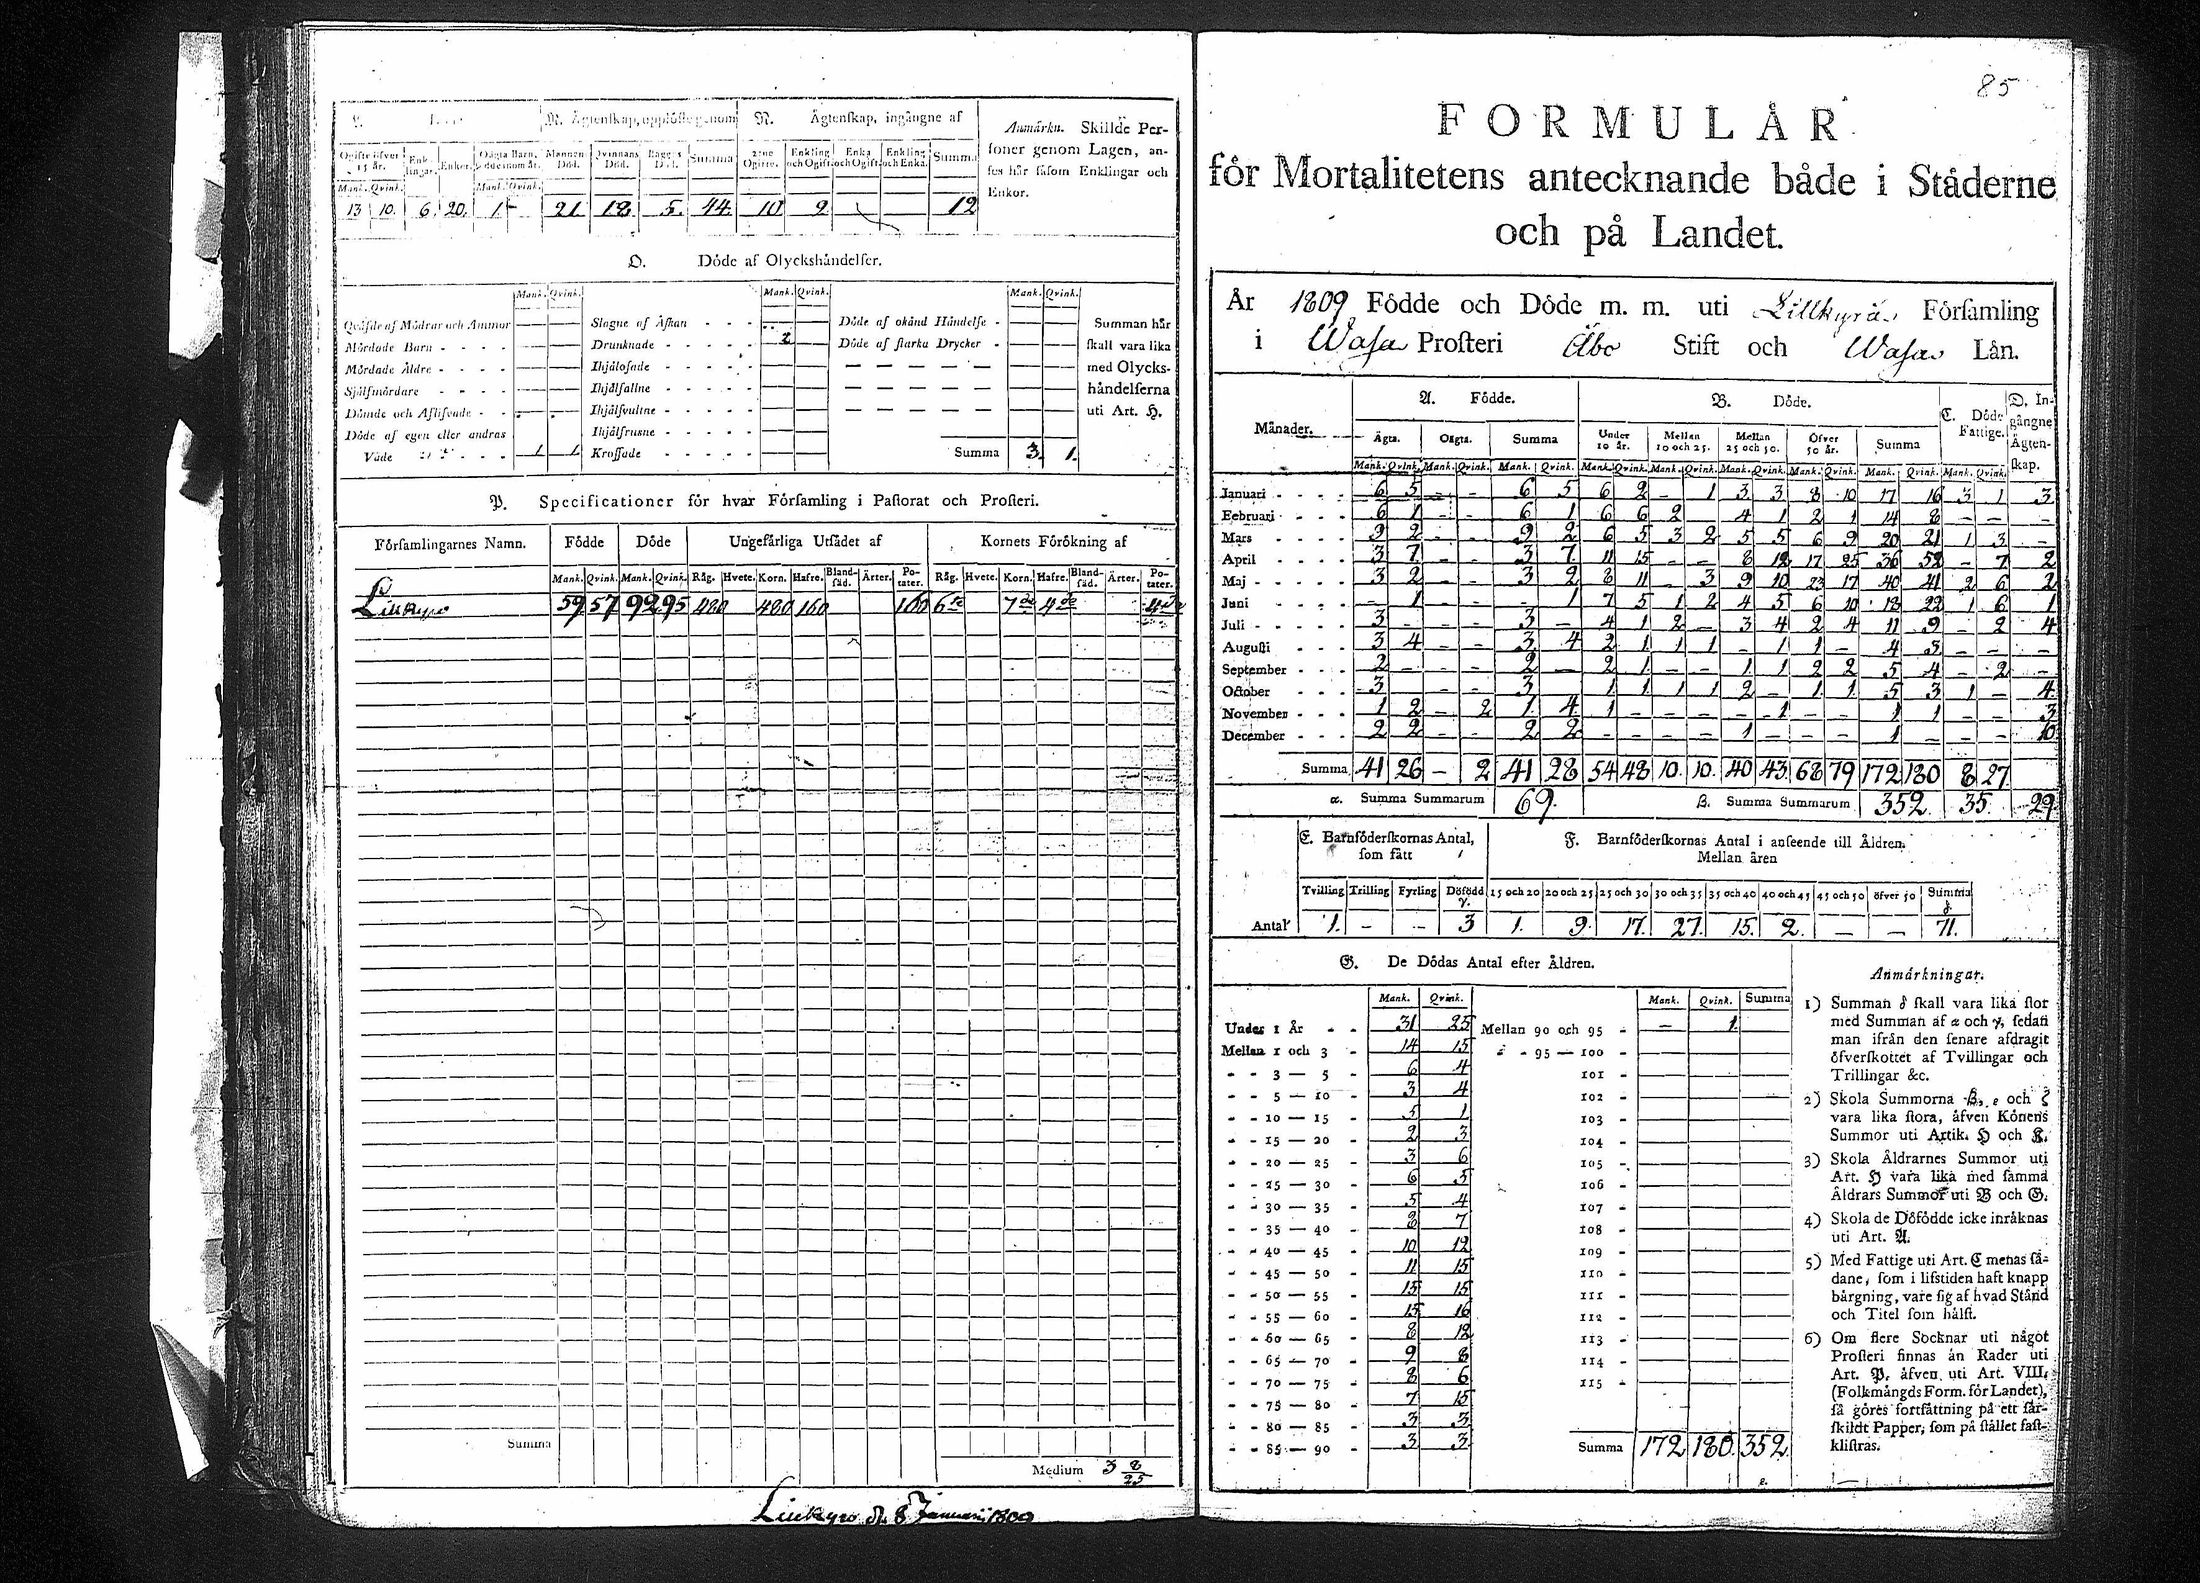 M. Ågtenskap, upplöste genom N. Ågtenskap, ingångne af
Anmärkn. Skillde Per-
soner genom Lagen, an-
ses här såsom Enklingar och
Enkor.
Ogifte öfver 15 år. Enk-lingar. Enkor. Oägta Barn, Mannens Död. Qvinnans Död. Bägges Död. Summa 2:ne Ogifte. Enkling och Ogift. Enka och Ogift. Enkling och Enka. Summa
Mank. Qvink. Mank. Qvink.
13 10. 6. 20. 1. - 21. 18. 5. 44. 10 2 12
O. Döde af Olyckshåndelser.
Mank. Qvink. Mank. Qvink. Mank. Qvink.
Qväfde af Mödrar och Ammor Slagne af Åskan - - - Döde af okänd Håndelse - Summan här
Mördade Barn - - - - Drunknade - - - - 2 Döde af starka Drycker - skall vara lika
Mördade Äldre - - - - Ihjälosade - - - - med Olycks-
Självmördare - - - - Ihjälfallne - - - - håndelserna
Dömde och Aflifvade - - Ihjälsvultne - - - - uti Art. H.
Döde af egen eller andras Ihjälfrusne - - - -
Våde - - - 1 1 Krossade - - - - Summa 3. 1.
P. Specificationer för hvar Församling i Pastorat och Prosteri.
Församlingarnes Namn. Födde Döde Ungefärliga Utsädet af Kornets Förökning af
Mank. Qvink. Mank. Qvink. Råg. Hvete. Korn. Hafre. Bland-säd. Ärter. Po-tater. Råg. Hvete. Korn. Hafre. Bland-säd. Ärter. Po-tater.
Lillkyro 59 57 92 95 480 480 160 160
Summa
Medium 3 8/25
Lillkyro d. 8 Januarii 1809
85
FORMULÅR
för Mortalitetens antecknande både i Städerne
och på Landet.
År 1809 Födde och Döde m. m. uti Lillkyrå Församling
i Wasa Prosteri Åbo Stift och Wasa Lån.
Månader. A. Födde. B. Döde. C. Döde Fattige. D. In-gångne Ågten-skap.
Ägta. Oägta. Summa Under 10 år. Mellan 10 och 25. Mellan 25 och 50. Öfver 50 år. Summa
Mank. Qvink. Mank. Qvink. Mank. Qvink. Mank. Qvink. Mank. Qvink. Mank. Qvink. Mank. Qvink. Mank. Qvink. Mank. Qvink.
Januari - - - 6 5 - - 6 5 6 2 - 1 3 3 8 10 17 16 3 1 3
Februari - - - 6 1 - - 6 1 6 6 2 4 1 2 1 14 8 - - -
Mars - - - 9 2 - - 9 2 6 5 3 2 5 5 6 9 20 21 1 3 -
April - - - 3 7 - - 3 7 11 15 - - 8 12 17 25 36 52 - 7 2
Maj - - - 3 2 - - 3 2 8 11 - 3 9 10 23 17 40 41 2 6 2
Juni - - - - 1 - - - 1 7 5 1 2 4 5 6 10 18 22 1 6 1
Juli - - - 3 - - - 3 - 4 1 2 - 3 4 2 4 11 9 - 2 4
Augusti - - - 3 4 - - 3 4 2 1 1 1 - 1 1 - 4 3 - - -
September - - - 2 - - - 2 - 2 1 - - 1 1 2 2 5 4 - 2 -
October - - - 3 - - 3 1 1 1 1 2 - 1 1 5 3 1 - 4
November - - - 1 2 - 2 1 4 1 - - - - 1 - - 1 1 - - 3
December - - - 2 2 - - 2 2 - - - - 1 - - - 1 - - - 10
Summa 41 26 - 2 41 28 54 48 10. 10. 40 43 68 79 172 180 8 27
α. Summa Summarum 69. β. Summa Summarum 352 35. 29
E. Barnföderskornas Antal, som fått F. Barnföderskornas Antal i anseende till Åldren.
Mellan åren
Tvilling Trilling Fyrling Döfödd γ. 15 och 20 20 och 25 25 och 30 30 och 35 35 och 40 40 och 45 45 och 50 öfver 50 Summa δ.
Antal 1. - - 3 1. 9. 17. 27. 15. 2. - - 71.
G. De Dödas Antal efter Åldren.
Mank. Qvink. Mank. Qvink. Summa
Under 1 År - - 31 25 Mellan 90 och 95 - - 1.
Mellan 1 och 3 - 14 15 - - 95 — 100 -
- - 3 — 5 - 6 4 101 -
- - 5 — 10 - 3 4 102 -
- - 10 — 15 - 5 1 103 -
- - 15 — 20 - 2 3 104 -
- - 20 — 25 - 3 6 105 -
- - 25 — 30 - 6 5 106 -
- - 30 — 35 - 5 4 107 -
- - 35 — 40 - 8 7 108 -
- - 40 — 45 - 10 12 109 -
- - 45 — 50 - 11 15 110 -
- - 50 — 55 - 15 15 111 -
- - 55 — 60 - 15 16 112 -
- - 60 — 65 - 8 12 113 -
- - 65 — 70 - 9 8 114 -
- - 70 — 75 - 8 6 115 -
- - 75 — 80 - 7 15
- - 80 — 85 - 3 3
- - 85 — 90 - 3 3 Summa 172 180. 352.
ε.
Anmärkningar.
1) Summan δ skall vara lika stor
med Summan af α och γ, sedan
man ifrån den senare afdragit
öfverskottet af Tvillingar och
Trillingar &c.
2) Skola Summorna β, ε och ζ
vara lika stora, äfven Könens
Summor uti Artik. H och K.
3) Skola Åldrarnes Summor uti
Art. H vara lika med samma
Åldrars Summor uti B och G.
4) Skola de Döfödde icke inräknas
uti Art. A.
5) Med Fattige uti Art. C menas så-
dane, som i lifstiden haft knapp
bärgning, vare sig af hvad Stånd
och Titel som hälst.
6) Om flere Socknar uti något
Prosteri finnas än Rader uti
Art. P. äfven uti Art. VIII.
(Folkmängds Form. för Landet),
så göres fortsättning på ett sär-
skildt Papper, som på stället fast-
klistras.